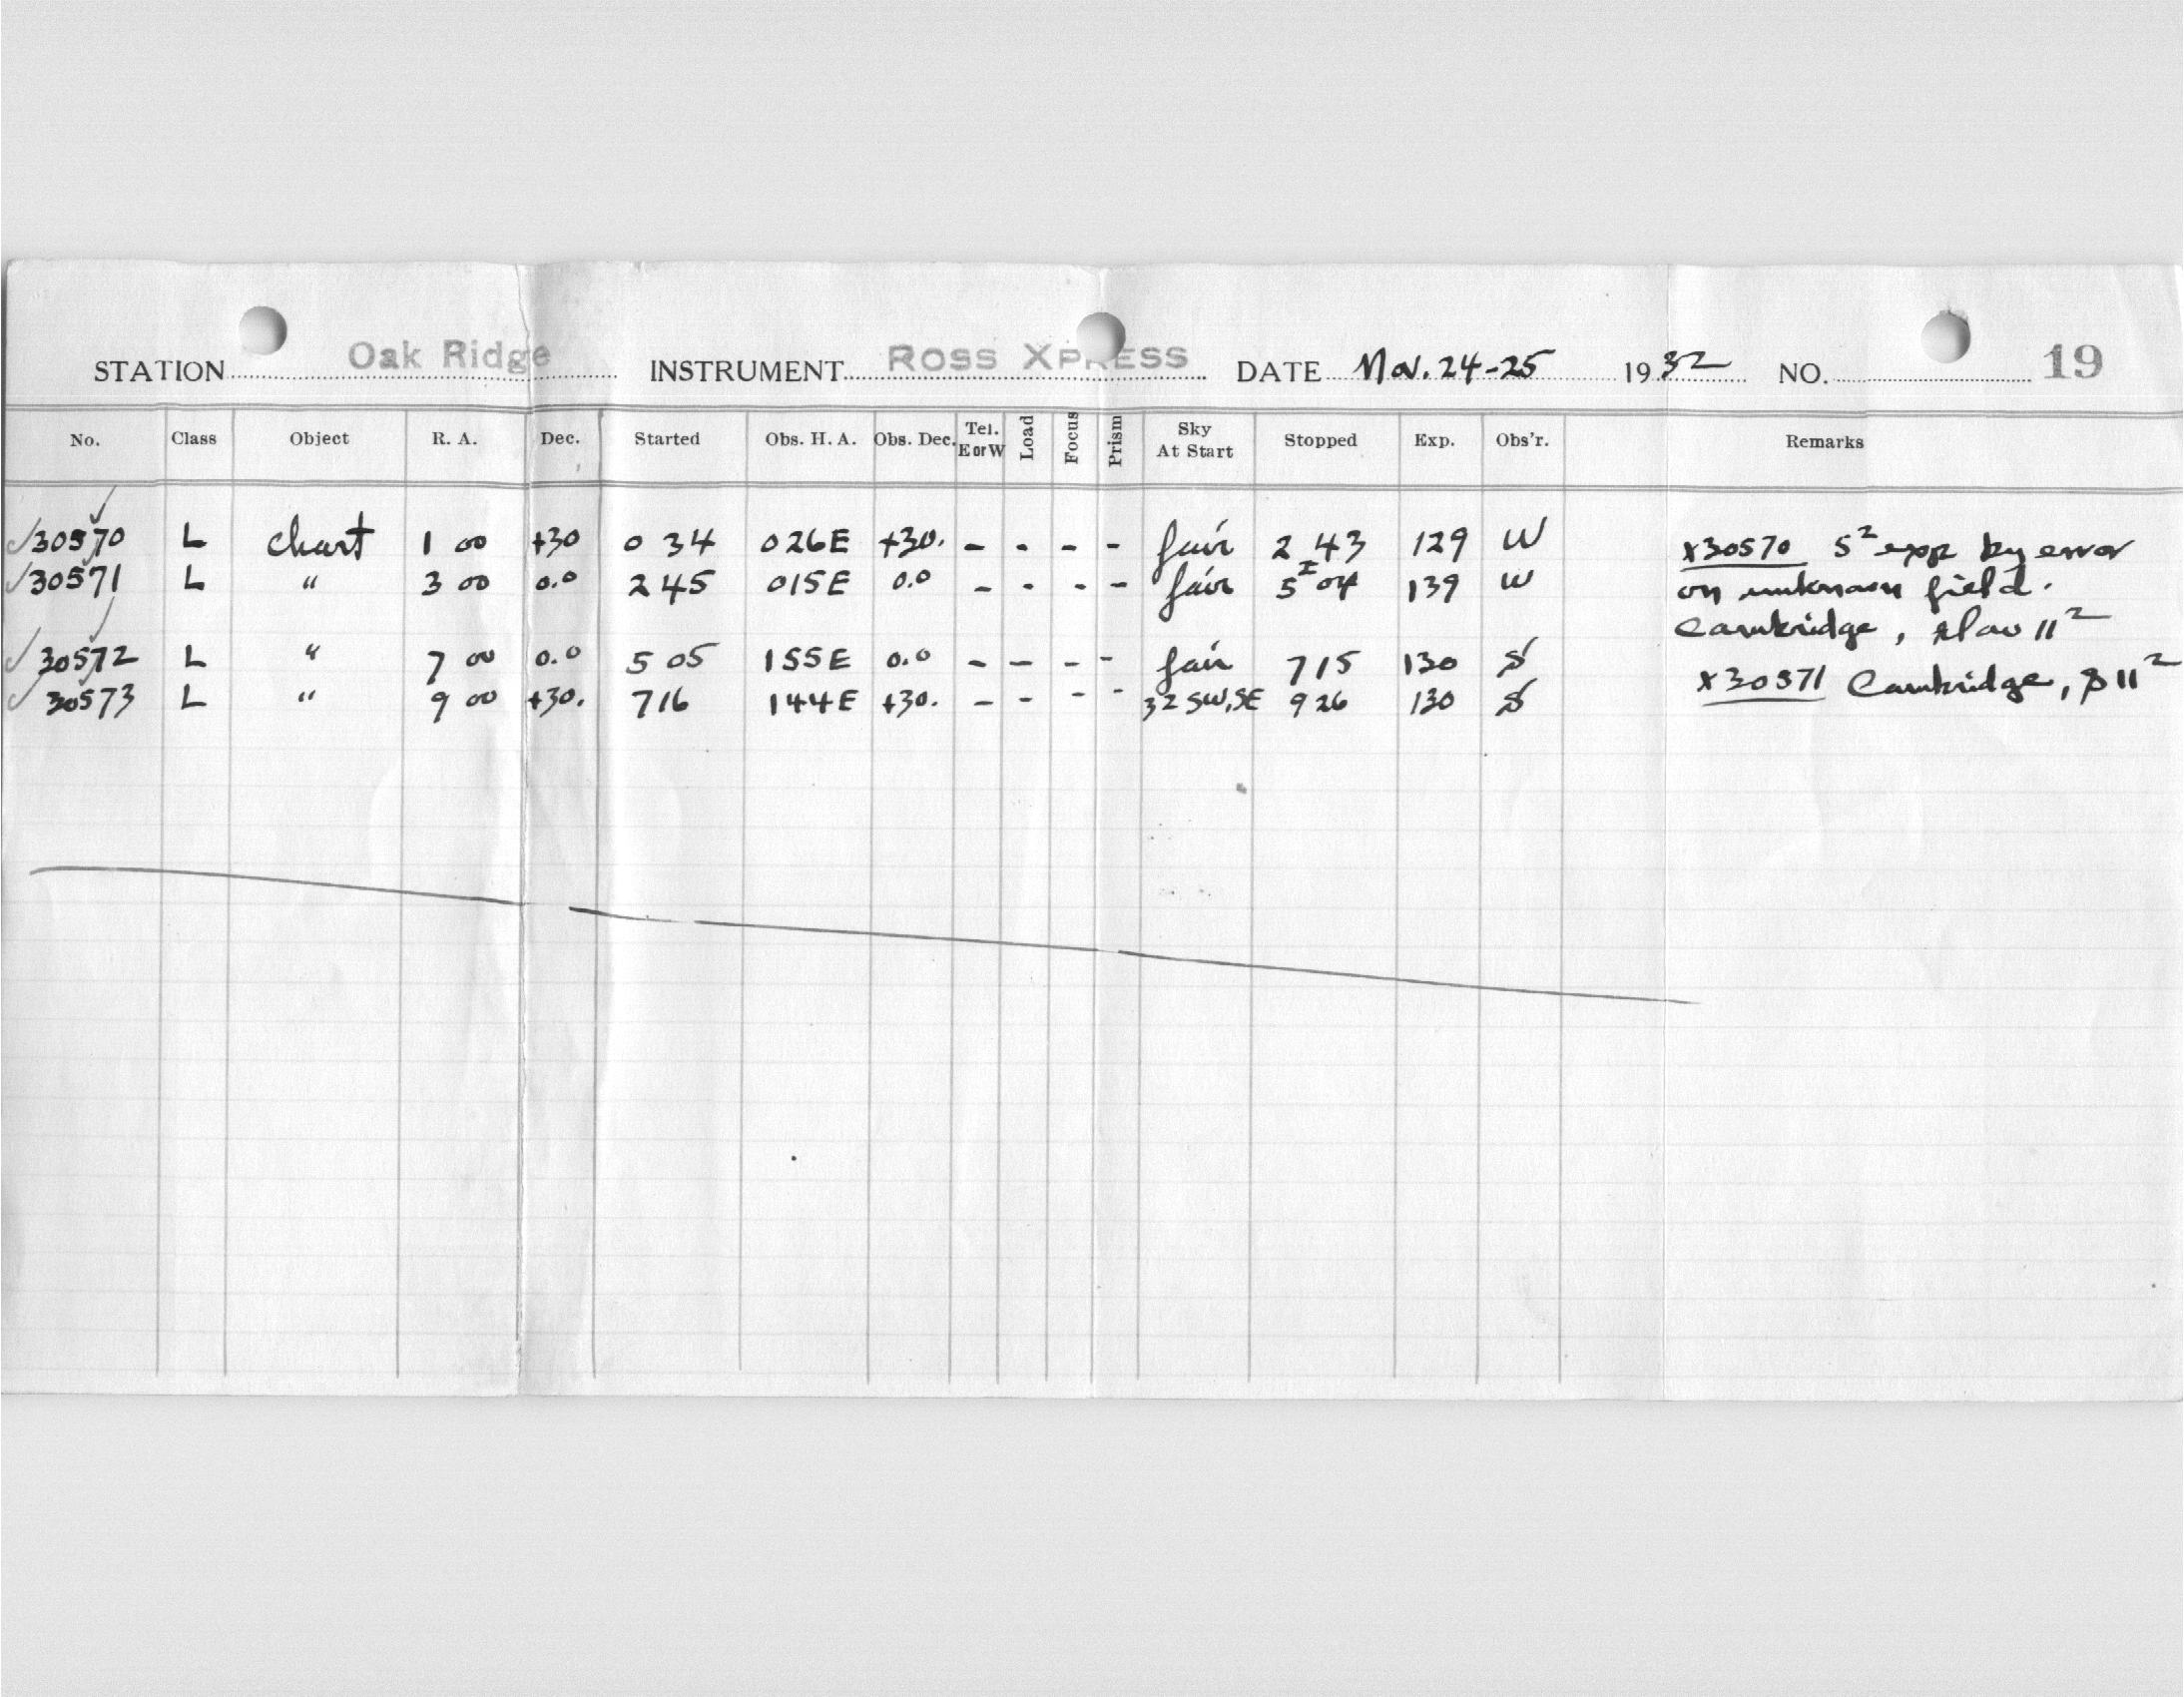 STATION Oak Ridge INSTRUMENT ROSS XPRESS DATE Nov. 24-25 1932 NO. 19
No. Class Object R. A. Dec. Started Obs. H. A. Obs. Dec. Tel. E or W Load Focus Prism Sky At Start Stopped Exp. Obs'r. Remarks
30570 L chart 1 00 +30 0 34 026E +30. - - - - fair 2 43 129 W x30570 5² exp by error
30571 L " 3 00 0.0 2 45 015E 0.0 - - - - fair 5 04 139 W on unknown field.
Cambridge, slow 11²
30572 L " 7 00 0.0 5 05 155E 0.0 - - - - fair 715 130 S x30571 Cambridge, S 11²
30573 L " 9 00 +30. 716 144E +30. - - - - 32 SW,SE 926 130 S